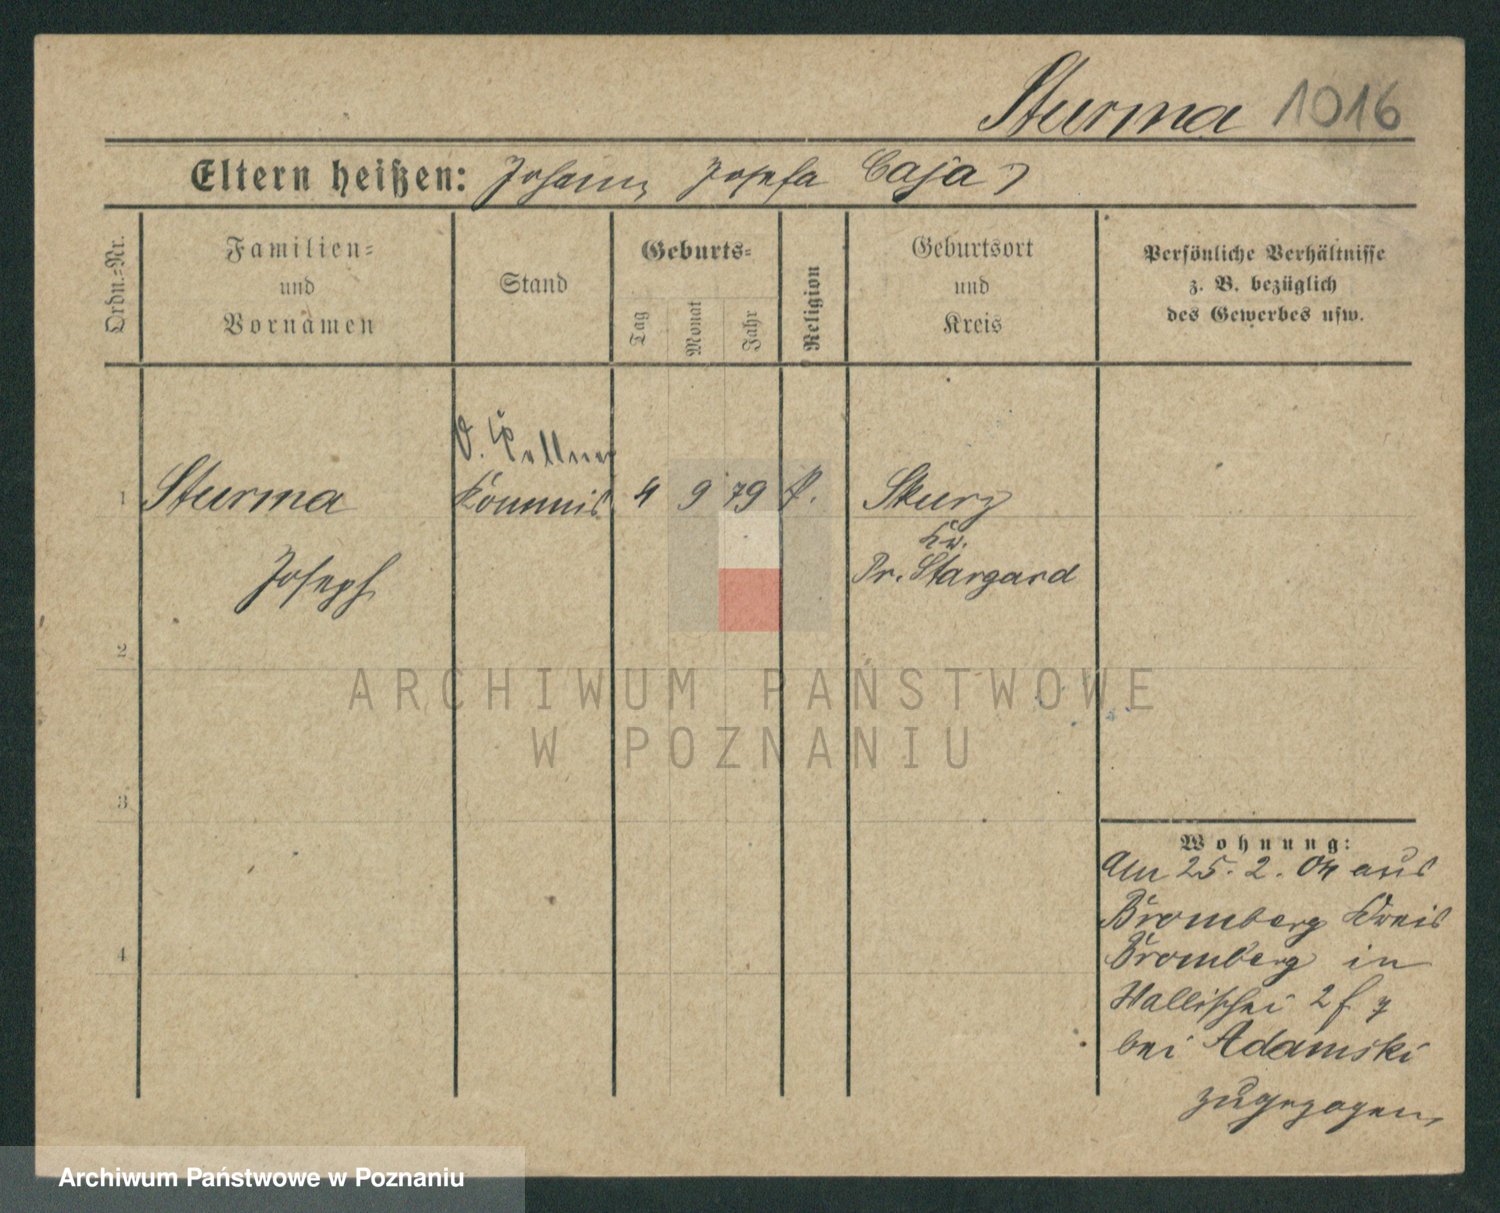 Sturma 1016
Eltern heißen: Johann Josefa Caja
Ordn.=Nr.
Familien=
und
Vornamen
Stand
Geburts=
Tag
Monat
Jahr
Religion
Geburtsort
und
Kreis
Persönliche Verhältnisse
z. B. bezüglich
des Gewerbes usw.
Kellner
1 Sturma Kommis 4 9 79 Skurz
Kr.
Joseph Pr. Stargard
2
ARCHIWUM PAŃSTWOWE
W POZNANIU
3
Wohnung:
Am 25. 2. 04 aus
Bromberg Kreis
4
Bromberg in
Wallischei 2
bei Adamski
zugezogen
Archiwum Państwowe w Poznaniu